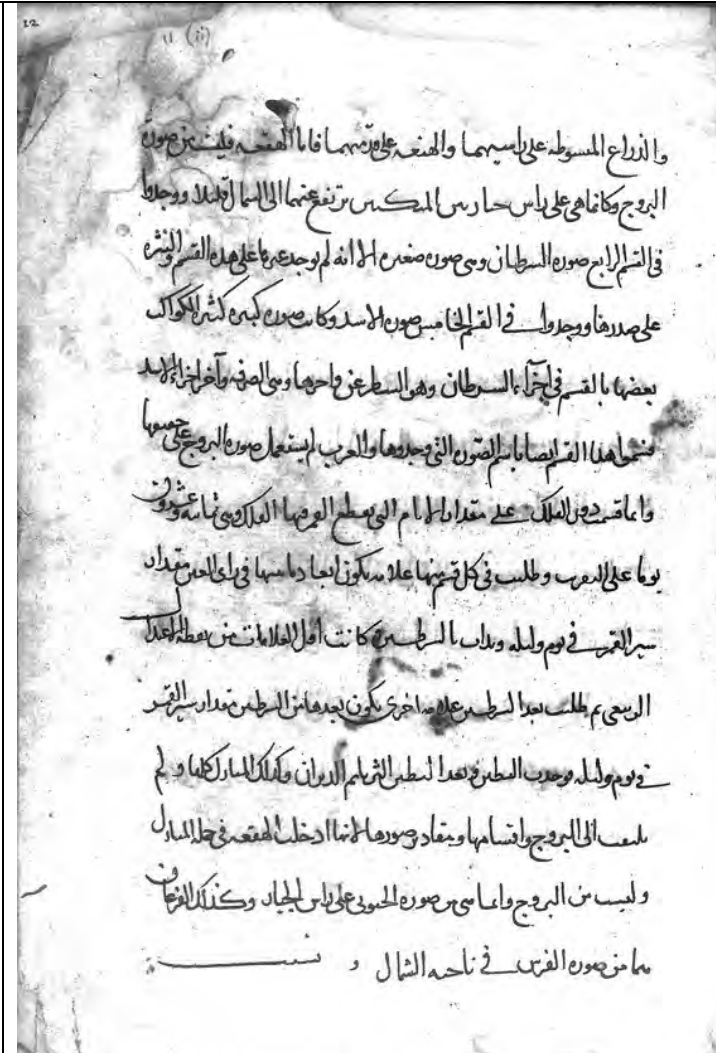 12
11 (ii)
والذراع المبسوطه على راسيهما والهنعه على قدميهما فاما الهقعه فليست من صوره
البروج وكانما هى على راس ترتفع عنهما الى الشمال قليلا ووجدوا
فى القسم الرابع صوره السرطان وهى صوره صغيره الا انه لم يوجد غيرها على هذه القسم والنثره
على صدرها ووجدوا فى القسم الخامس صوره الاسد وكانت صوره كبيره كثيره الكواكب
بعضها بالقسم فى اجزاء السرطان وهو السطر عن واخرها وهى الصرفه وآخر اجزاء الاسد
فسموا هذا القسم ايضا باسم الصوره التى وجدوها والعرب لم يستعمل صوره البروج على جميعها
وانما قسمت دور الفلك على مقدار الايام التى يقطع القمر فيها الفلك وهى ثمانيه وعشرون
يوما على التقريب وطلبت فى كل قسم منها علامه يكون ابعاد ما بينها فى راى العين مقدار
سير القمر فى يوم وليله وبدات بالشرطين وكانت اول العلامات من نقطه الاعتدال
الربيعى ثم طلبت بعد الشرطين علامه اخرى يكون بعدها من الشرطين مقدار سير القمر
فى يوم وليله فوجدت البطين وبعد البطين الثريا ثم الدبران وكذلك المنازل كلها ولم
يلتفت الى البروج واقسامها ومقادير صورها لانها ادخلت الهقعه فى جمله المنازل
وليست من البروج وانما هى من صوره الجنوبى على راس الجبار وكذلك الفرغان
هما من صوره الفرس فى ناحيه الشمال و